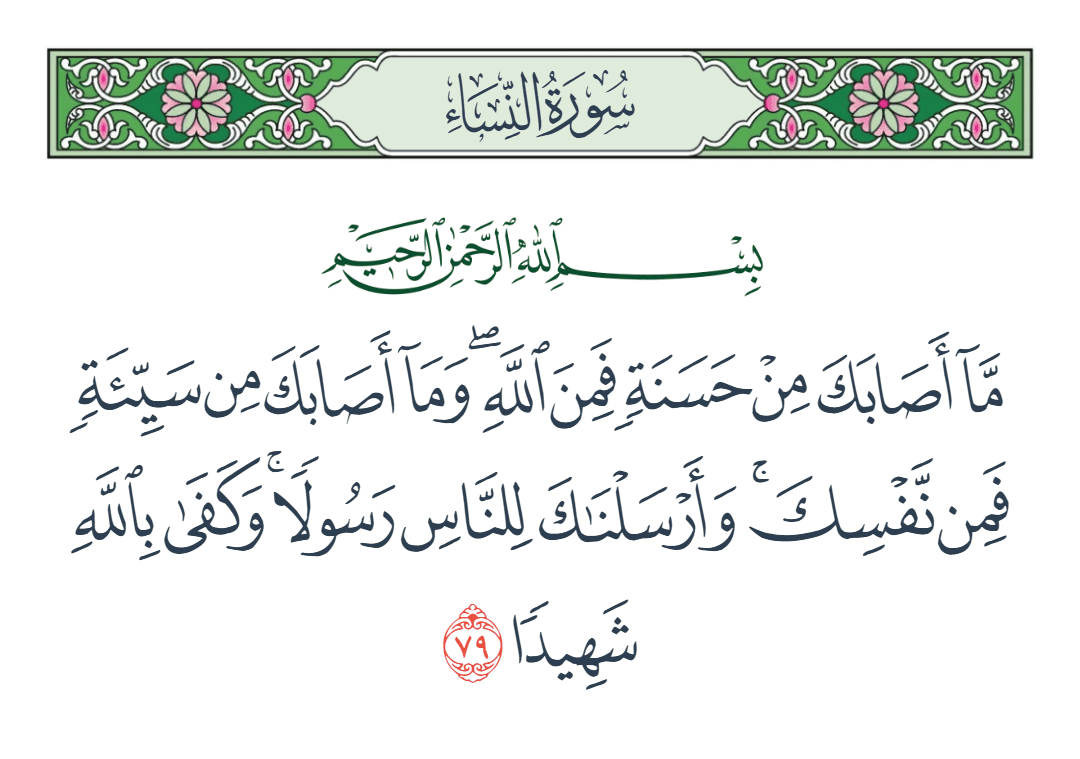 سُورَةُ النِّسَاءِ
بِسْمِ ٱللَّهِ ٱلرَّحْمَٰنِ ٱلرَّحِيمِ
مَّآ أَصَابَكَ مِنْ حَسَنَةٍ فَمِنَ ٱللَّهِ ۖ وَمَآ أَصَابَكَ مِن سَيِّئَةٍ
فَمِن نَّفْسِكَ ۚ وَأَرْسَلْنَـٰكَ لِلنَّاسِ رَسُولًا ۚ وَكَفَىٰ بِٱللَّهِ
شَهِيدًا ٧٩